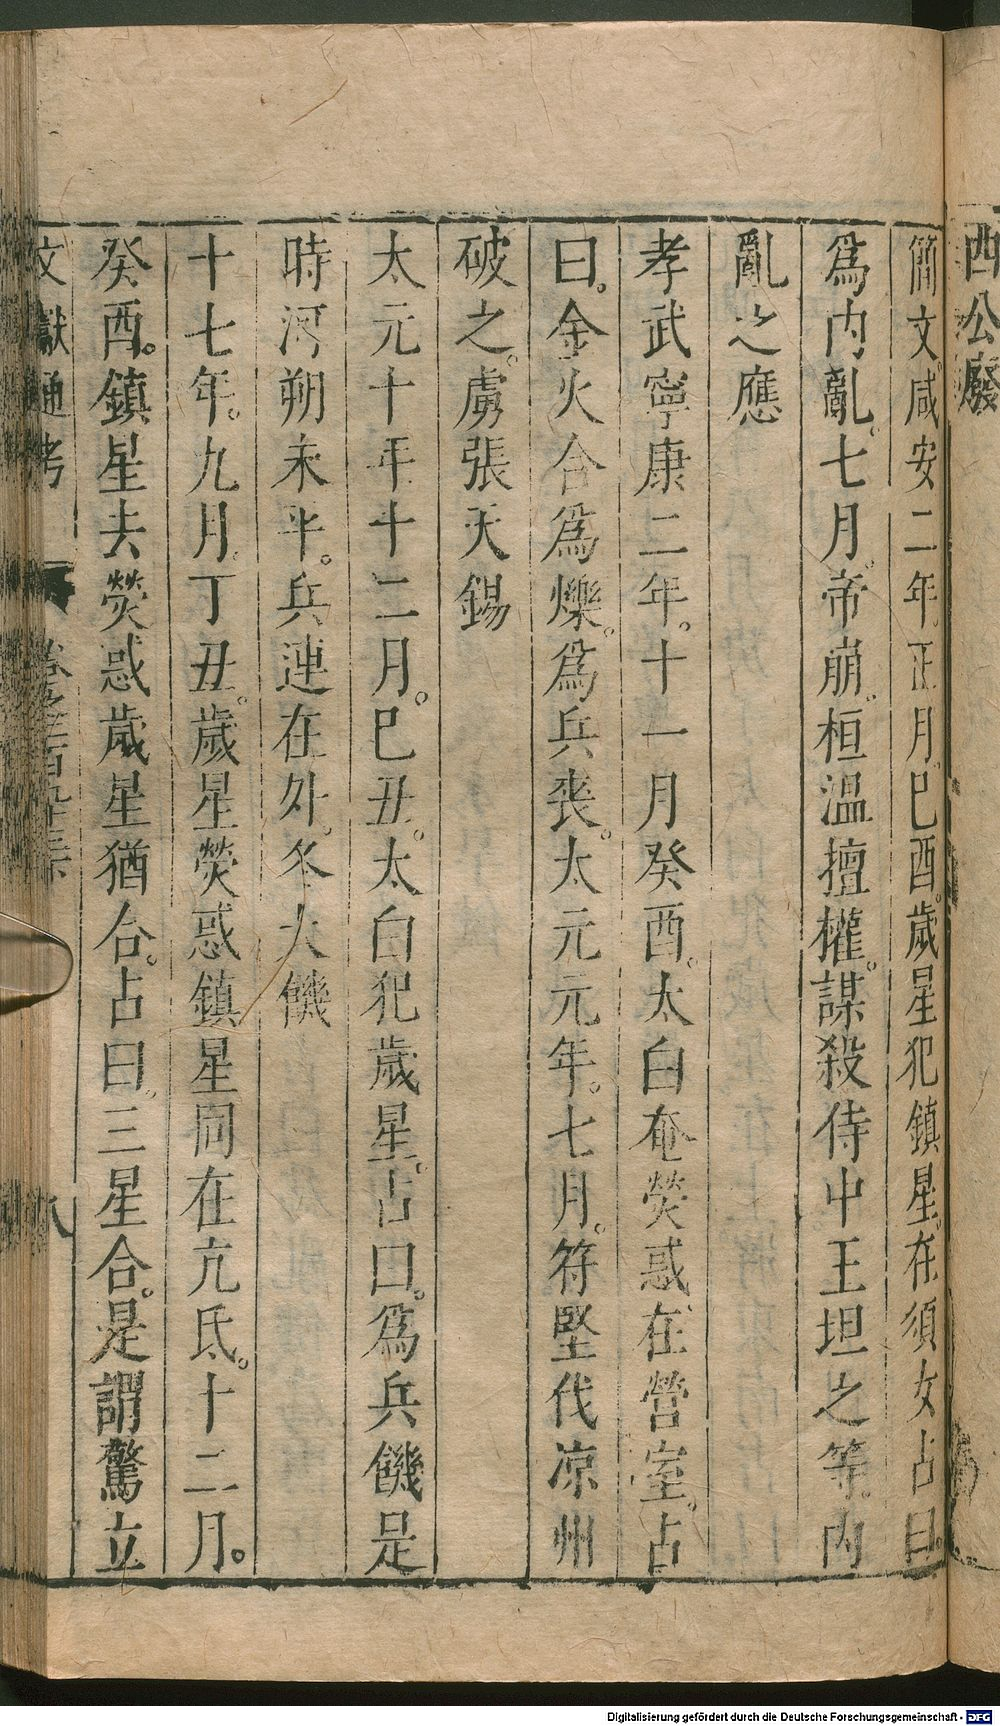 酉公廢
簡文咸安二年。正月己酉。歲星犯鎮星。在須女。占曰。
爲內亂。七月。帝崩。桓溫擅權。謀殺侍中王坦之等。內
亂之應
孝武寧康二年。十一月癸酉。太白奄熒惑。在營室。占
曰。金火合爲爍。爲兵喪。太元元年。七月。符堅伐凉州
破之。虜張天錫
太元十年十二月。己丑。太白犯歲星。占曰。爲兵饑是
時河朔未平。兵連在外。冬大饑
十七年。九月。丁丑。歲星熒惑鎮星同在亢氐。十二月。
癸酉。鎮星去熒惑歲星猶合。占曰。三星合。是謂驚立
文獻通考 卷之二百九十三 八
Digitalisierung gefördert durch die Deutsche Forschungsgemeinschaft - DFG